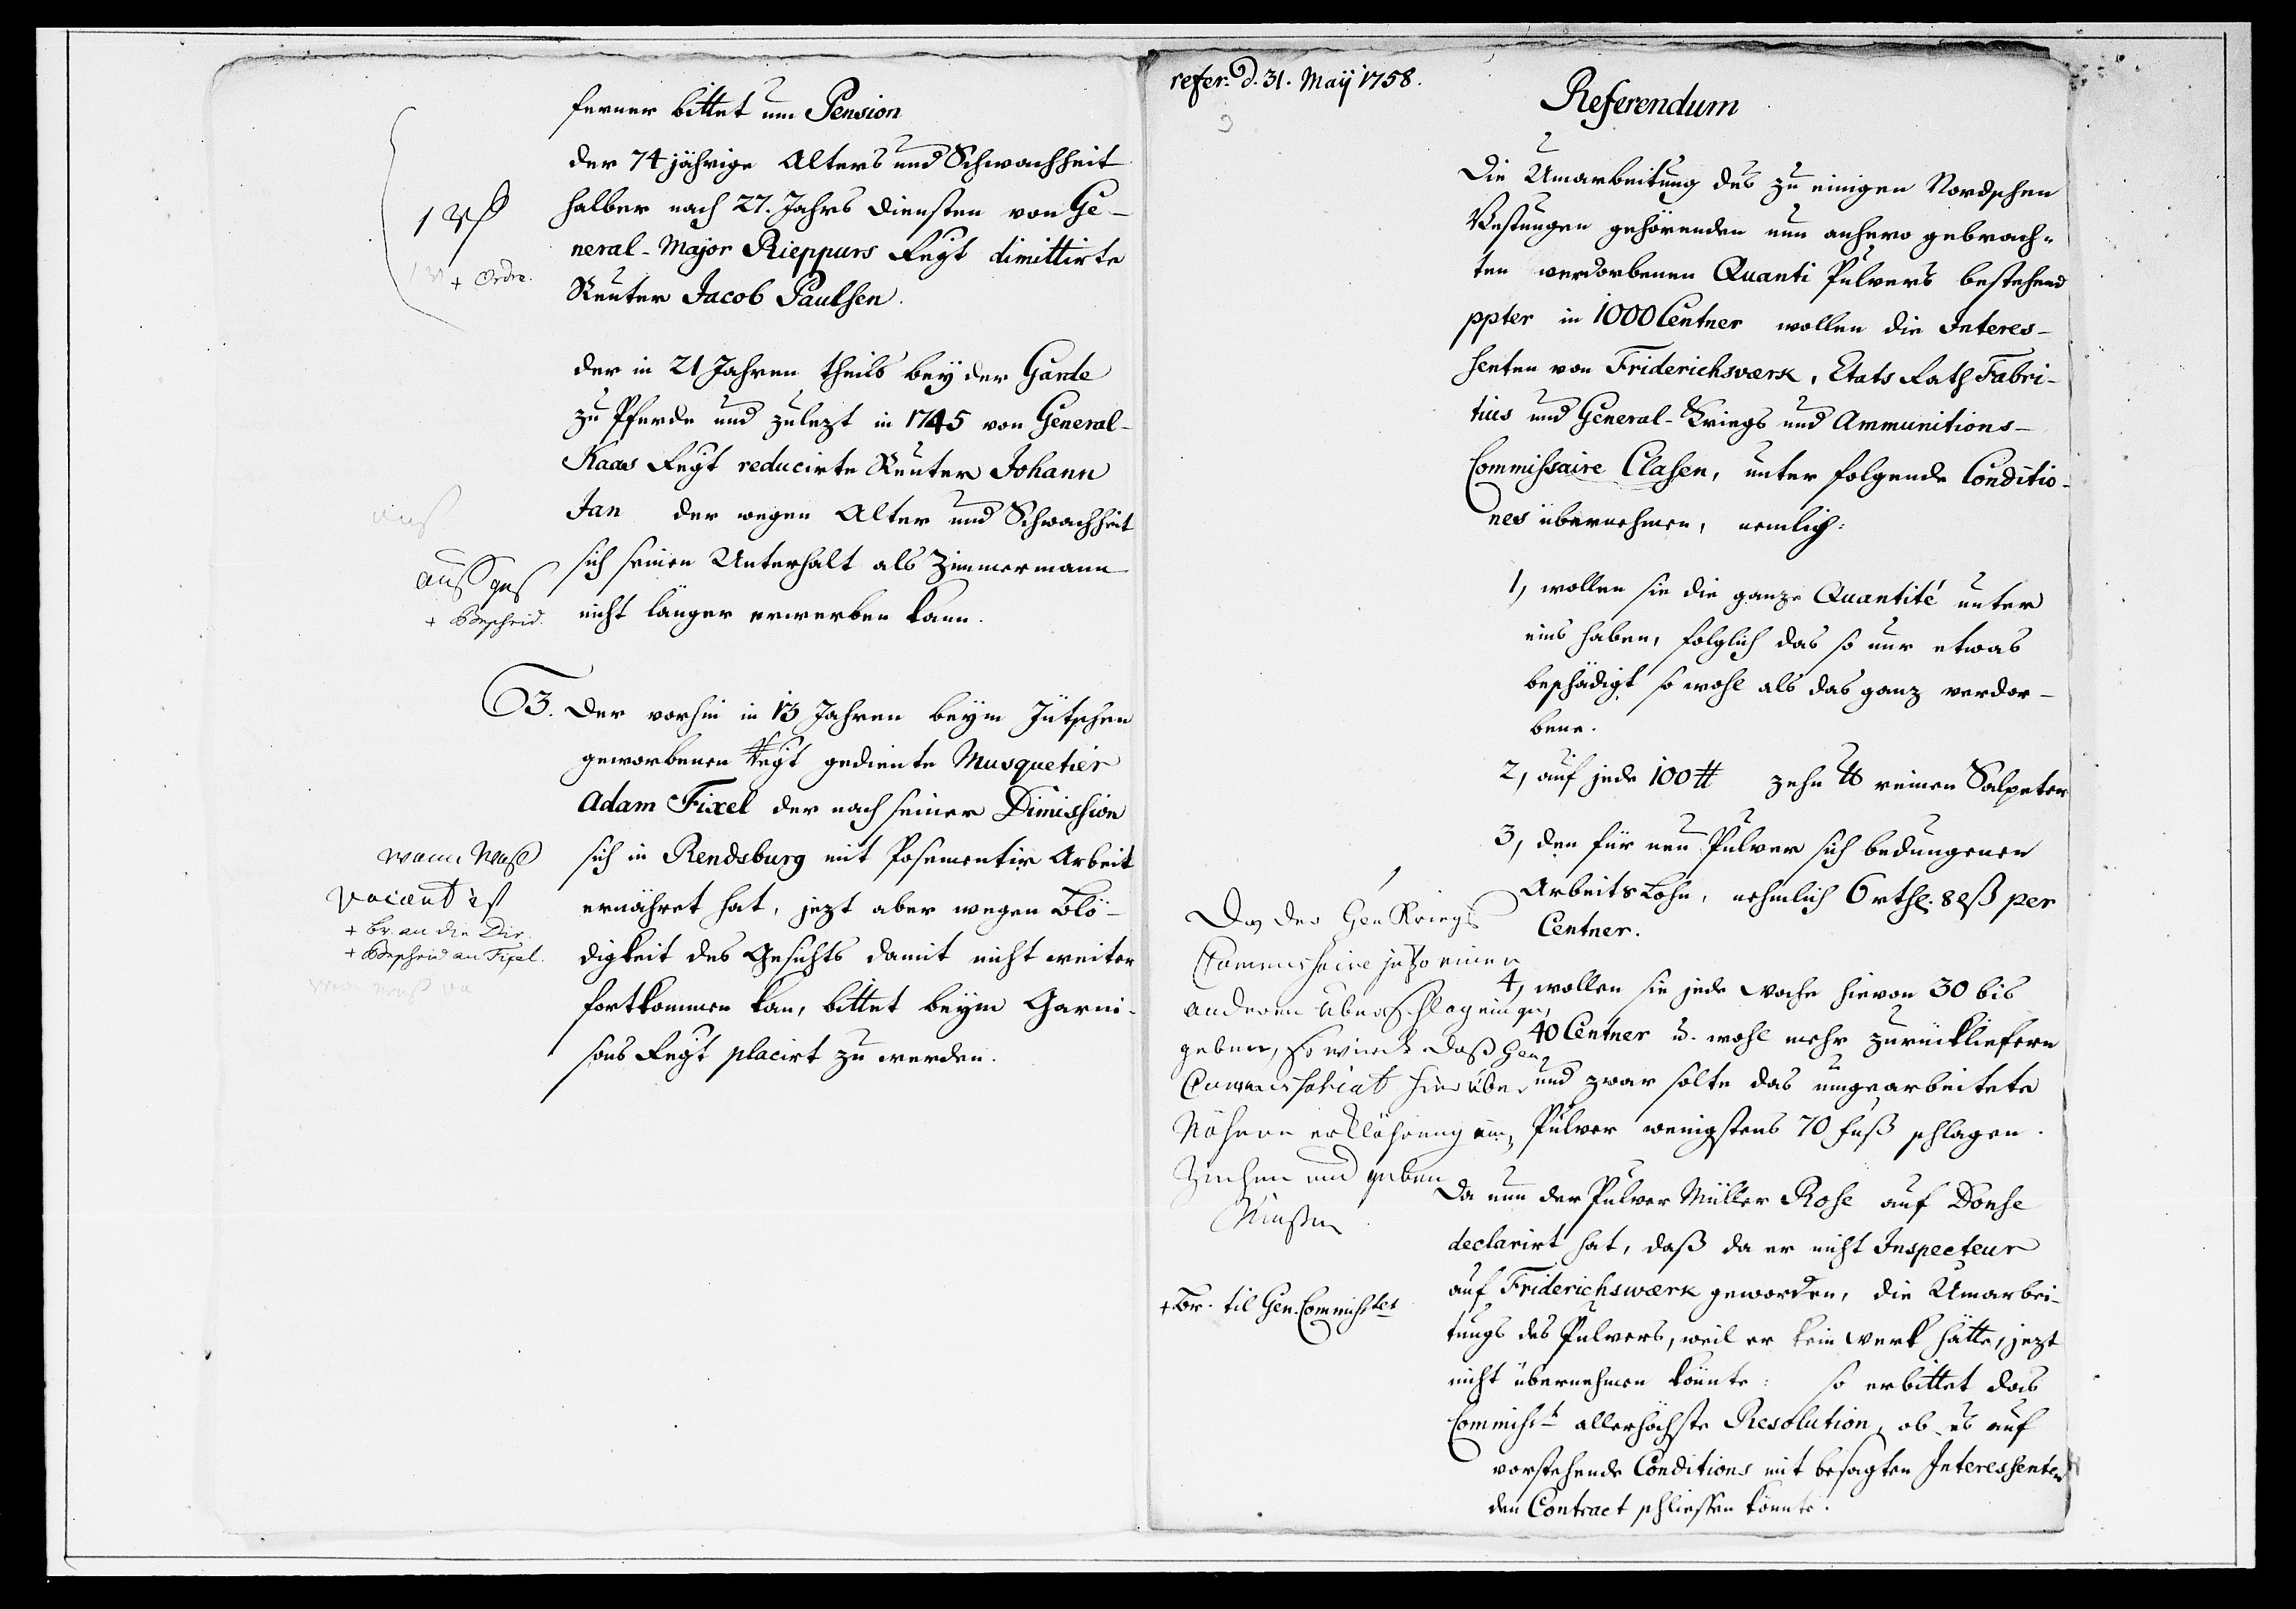 ferner bittet um Pension
der 74 jährige Alters und Schwachheit
halber nach 27. Jahrs Diensten von Ge-
neral-Major Rieppurs Regt dimittirte
Reuter Jacob Paulsen.
1
+ Ordre.
der in 21 Jahren theils bey der Garde
zu Pferde und zulezt in 1745 von General-
Kaas Regt reducirte Reuter Johann
Jan der wegen Alter und Schwachheit
sich seinen Unterhalt als Zimmermann
nicht länger erwerben kann.
+ Bescheid.
3. Der vorhin in 13 Jahren beym Jütschen
geworbenen Regt gediente Musquetier
Adam Fixel der nach seiner Dimission
sich in Rendsburg mit Posementir Arbeit
ernähret hat, jezt aber wegen Blö-
digkeit des Gesichts damit nicht weiter
fortkommen kan, bittet beym Garni-
sons Regt placirt zu werden.
wann waß
vacant ist
+ Br. an die Dir.
+ Bescheid an Fixel.
refer. d. 31. Maÿ 1758.
Referendum
Die Umarbeitung des zu einigen Nordschen
Vestungen gehörenden nun anhero gebrach-
ten verdorbenen Quanti Pulvers bestehend
ppter in 1000 Centner wollen die Interes-
senten von Friderichsværk, Etats Rath Fabri-
tius und General-Kriegs und Ammunitions-
Commissaire Classen, unter folgende Conditio-
nes übernehmen, nemlich:
1, wollen sie die ganze Quantité unter
eins haben, folglich das so nur etwas
beschädigt so wohl als das ganz verdor-
bene.
2, auf jede 100 ℔ zehn ℔ reinen Salpeter
3, den für neu Pulver sich bedungenen
Arbeits Lohn, nehmlich 6 rthl. 8 ß per
Centner.
4, wollen sie jede Woche hievon 30 bis
40 Centner u. wohl mehr zurückliefern
und zwar solte das umgearbeitete
Pulver wenigstens 70 Fuß schlagen.
Da nun der Pulver Müller Rose auf Donse
declarirt hat, daß da er nicht Inspecteur
auf Friderichsværk geworden, die Umarbei-
tungs des Pulvers, weil er kein Werk hätte, jezt
nicht übernehmen könnte: so erbittet das
Commisst allerhöchste Resolution, ob es auf
vorstehende Conditions mit besagten Interessenten
den Contract schliessen könnte.
Da der Gen Kriegs
Commissaire jetzo einen
anderen überschlag einge,
geben, so wird daß Gen,
Commissariat hierüber
Nähere erklährung ein,
Ziehen und geben
Müßen
+ Br. til Gen. Commisstet